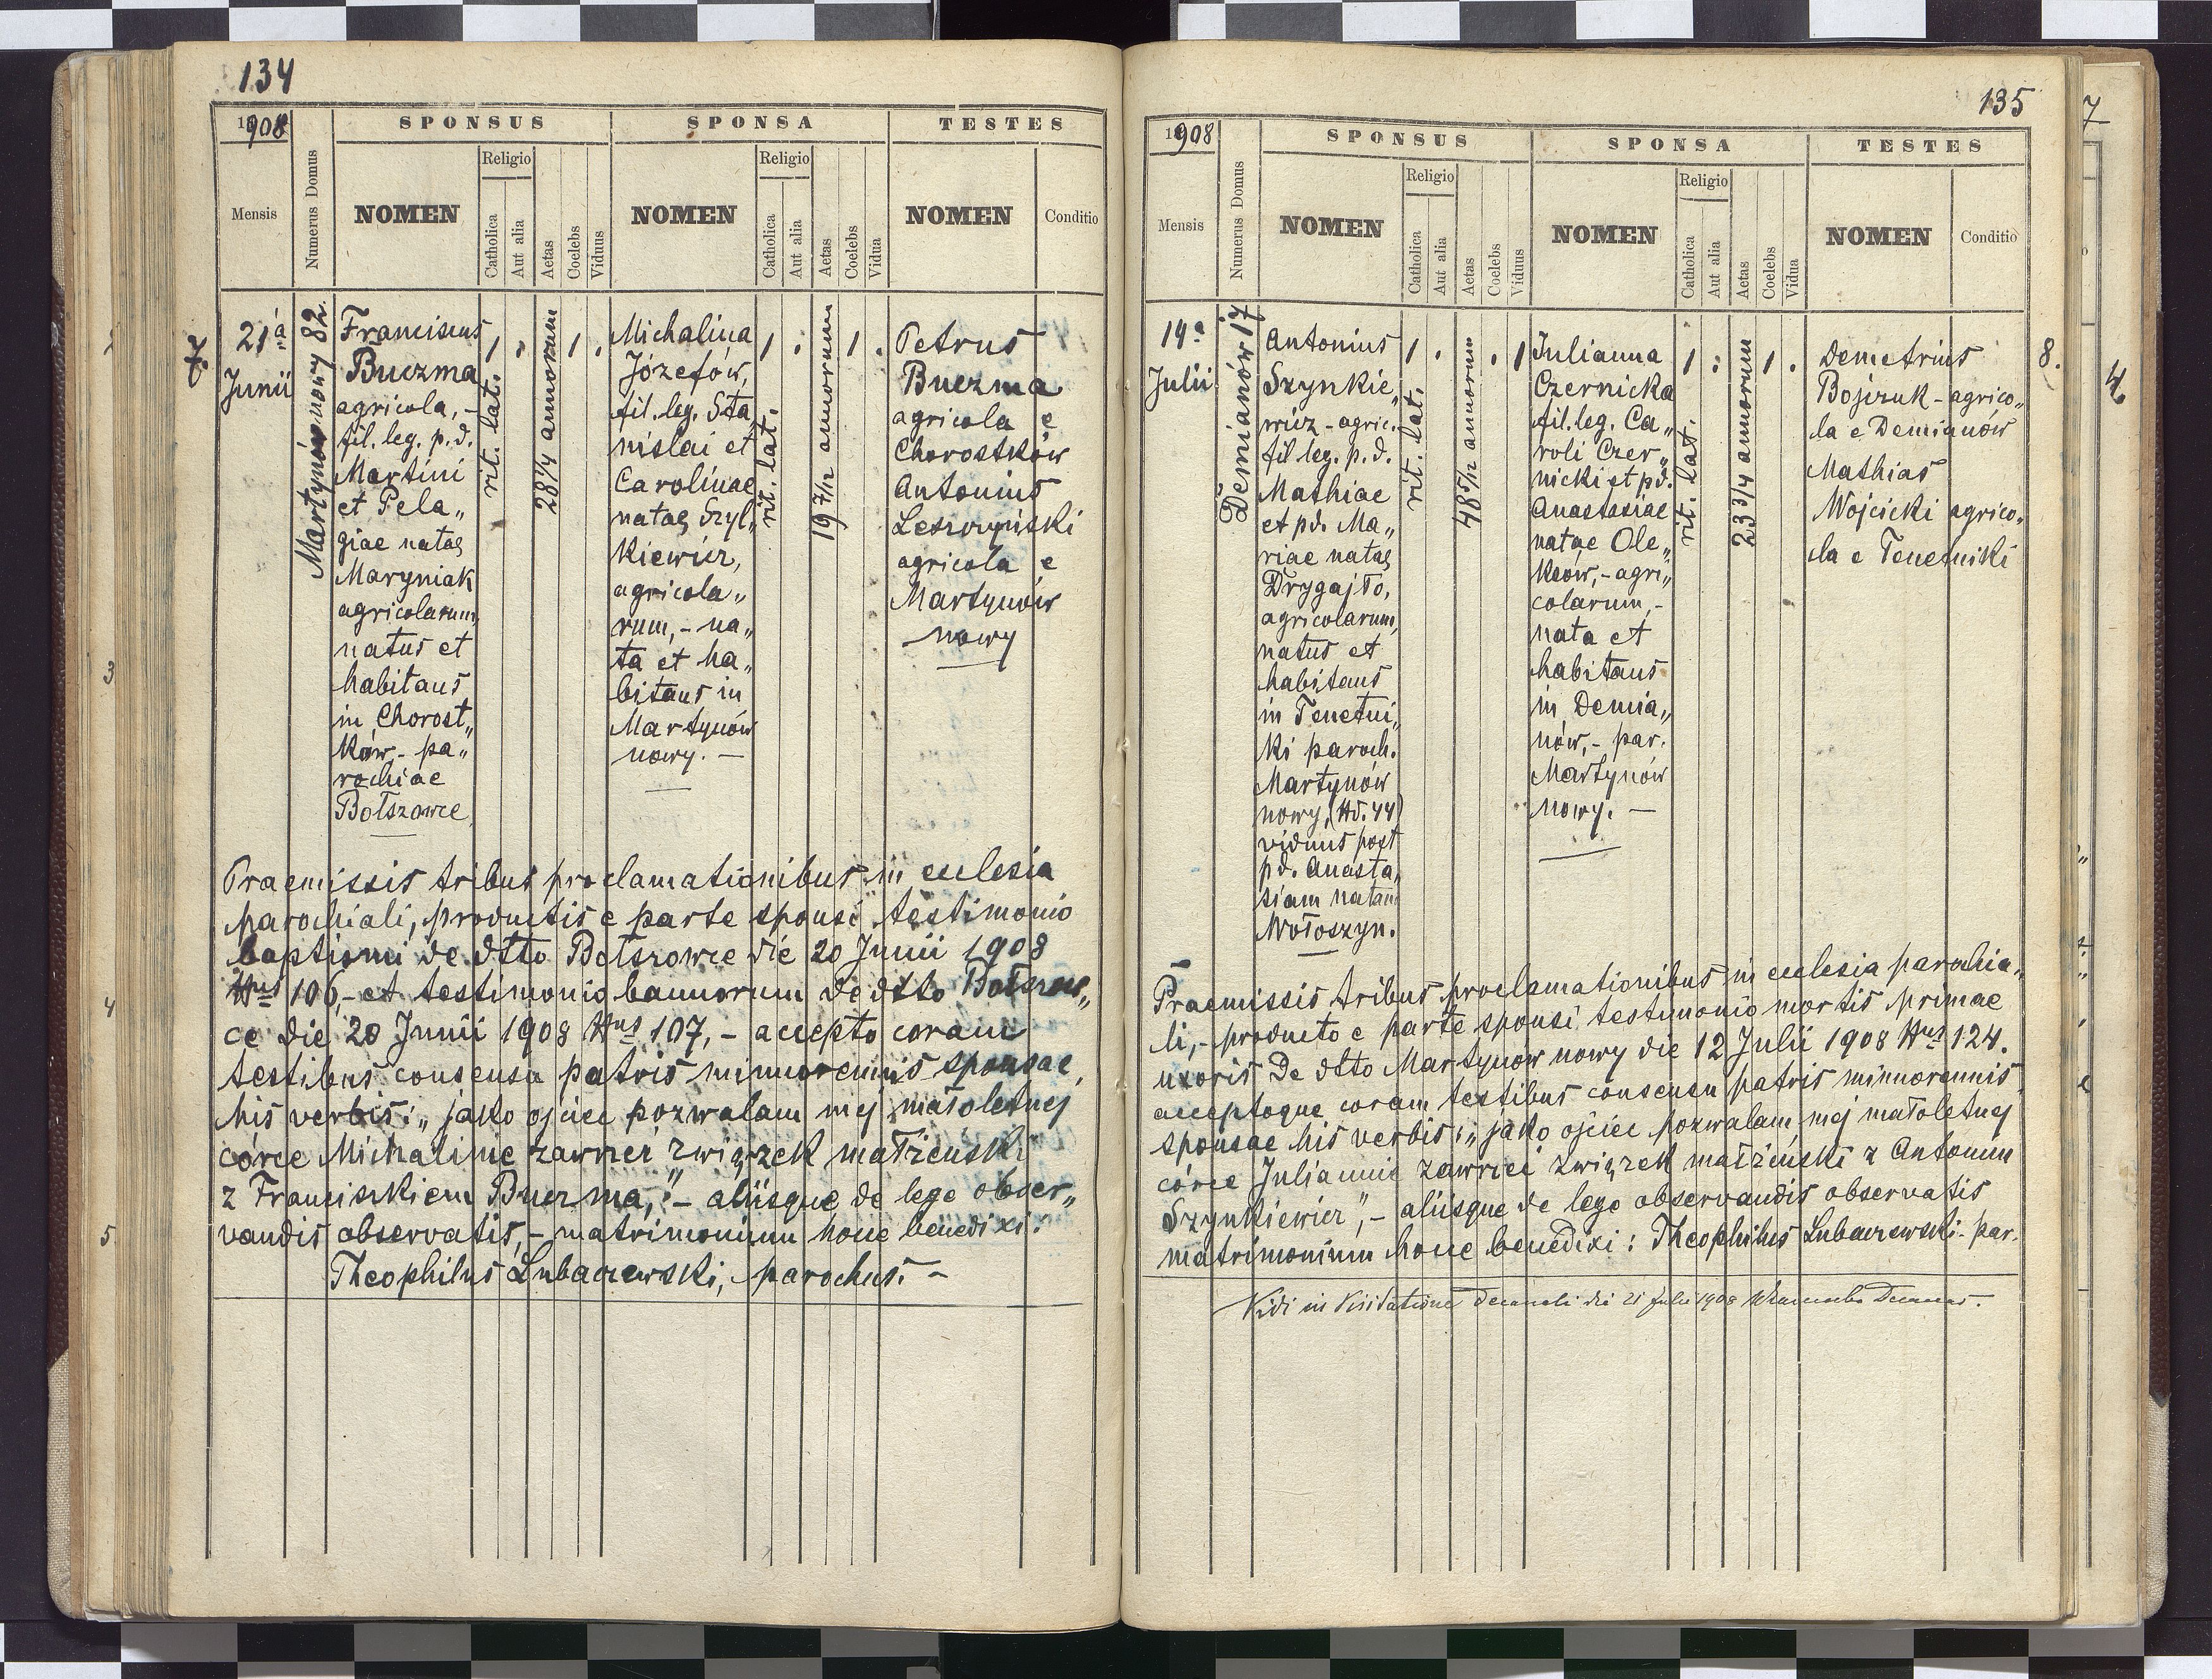 134
1908
SPONSUS
SPONSA
TESTES
Mensis
Numerus Domus
NOMEN
Religio
Catholica
Aut alia
Aetas
Coelebs
Viduus
NOMEN
Religio
Catholica
Aut alia
Aetas
Coelebs
Vidua
NOMEN
Conditio
7.
21a
Junii
Martynów nowy 82.
Franciscus
Buczma
agricola, -
fil. leg. p. d.
Martini
et Pela„
giae natae
Maryniak
agricolarum,
natus et
habitans
in Chorost„
ków, - pa„
rochiae
Bołszowce
1
rit. lat.
28 1/4 annorum
1
Michalina
Józefów,
fil. leg. Sta„
nislai et
Carolinae
natae Szyl„
kiewicz,
agricola„
rum, - na„
ta et ha„
bitans in
Martynów
nowy. -
1
rit. lat.
19 7/12 annorum
1
Petrus
Buczma
agricola e
Chorostków
Antonius
Leszczyński
agricola e
Martynów
nowy
Praemissis tribus proclamationibus in ecclesia
parochiali, productis e parte sponsi testimonio
baptismi de dtto Bołszowce die 20 Junii 1908
Nus 106, - et testimonio bannorum de dtto Bołszow„
ce die 20 Junii 1908 Nus 107, - accepto coram
testibus consensu patris minnorennis sponsae,
his verbis: „jako ojciec pozwalam mej małoletniej
córce Michalinie zawrzeć związek małżeński
z Franciszkiem Buczma," - aliisque de lege obser„
vandis observatis, - matrimonium hocce benedixi:
Theophilus Lubaczewski, parochus. -
135
1908
SPONSUS
SPONSA
TESTES
Mensis
Numerus Domus
NOMEN
Religio
Catholica
Aut alia
Aetas
Coelebs
Viduus
NOMEN
Religio
Catholica
Aut alia
Aetas
Coelebs
Vidua
NOMEN
Conditio
14a
Julii
Demianów 17
Antonius
Szynkie„
wicz - agric.
fil. leg. p. d.
Mathiae
et pd. Ma„
riae natae
Drygajło,
agricolarum,
natus et
habitans
in Tenetni„
ki paroch.
Martynów
nowy, (Nd. 44)
viduus post
pd. Anasta„
siam natam
Wołoszyn.
1
rit. lat.
48 5/12 annorum
1
Julianna
Czernicka
fil. leg. Ca„
roli Czer„
nicki et pd.
Anastasiae
natae Ole„
ksów, - agri„
colarum, -
nata et
habitans
in Demia„
nów, - par.
Martynów
nowy. -
1
rit. lat.
23 3/4 annorum
1
Demetrius
Bojczuk - agrico„
la e Demianów
Mathias
Wojcicki agrico„
la e Tenetniki
8.
Praemissis tribus proclamationibus in ecclesia parochia„
li, - producto e parte sponsi testimonio mortis primae
uxoris de dtto Martynów nowy die 12 Julii 1908 Nus 124.
acceptoque coram testibus consensu patris minnorennis
sponsae his verbis: „jako ojciec pozwalam mej małoletniej
córce Juliannie zawrzeć związek małżeński z Antonim
Szynkiewicz", - aliisque de lege observandis observatis
matrimonium hocce benedixi: Theophilus Lubaczewski - par.
Vidi in Visitatione decanali die 21 Julii 1908
3
4
5
7
4.